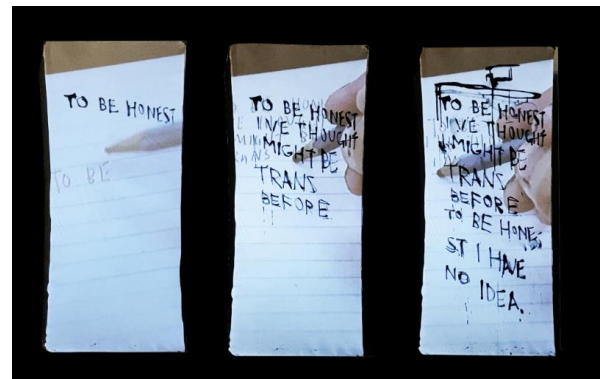 TO BE HONEST
TO BE
TO BE HONEST
I'VE THOUGHT
MIGHT BE
TRANS
BEFORE
TO BE HONEST
I'VE THOUGHT
MIGHT BE
TRANS
BEFORE
TO BE HONE-
ST I HAVE
NO IDEA.